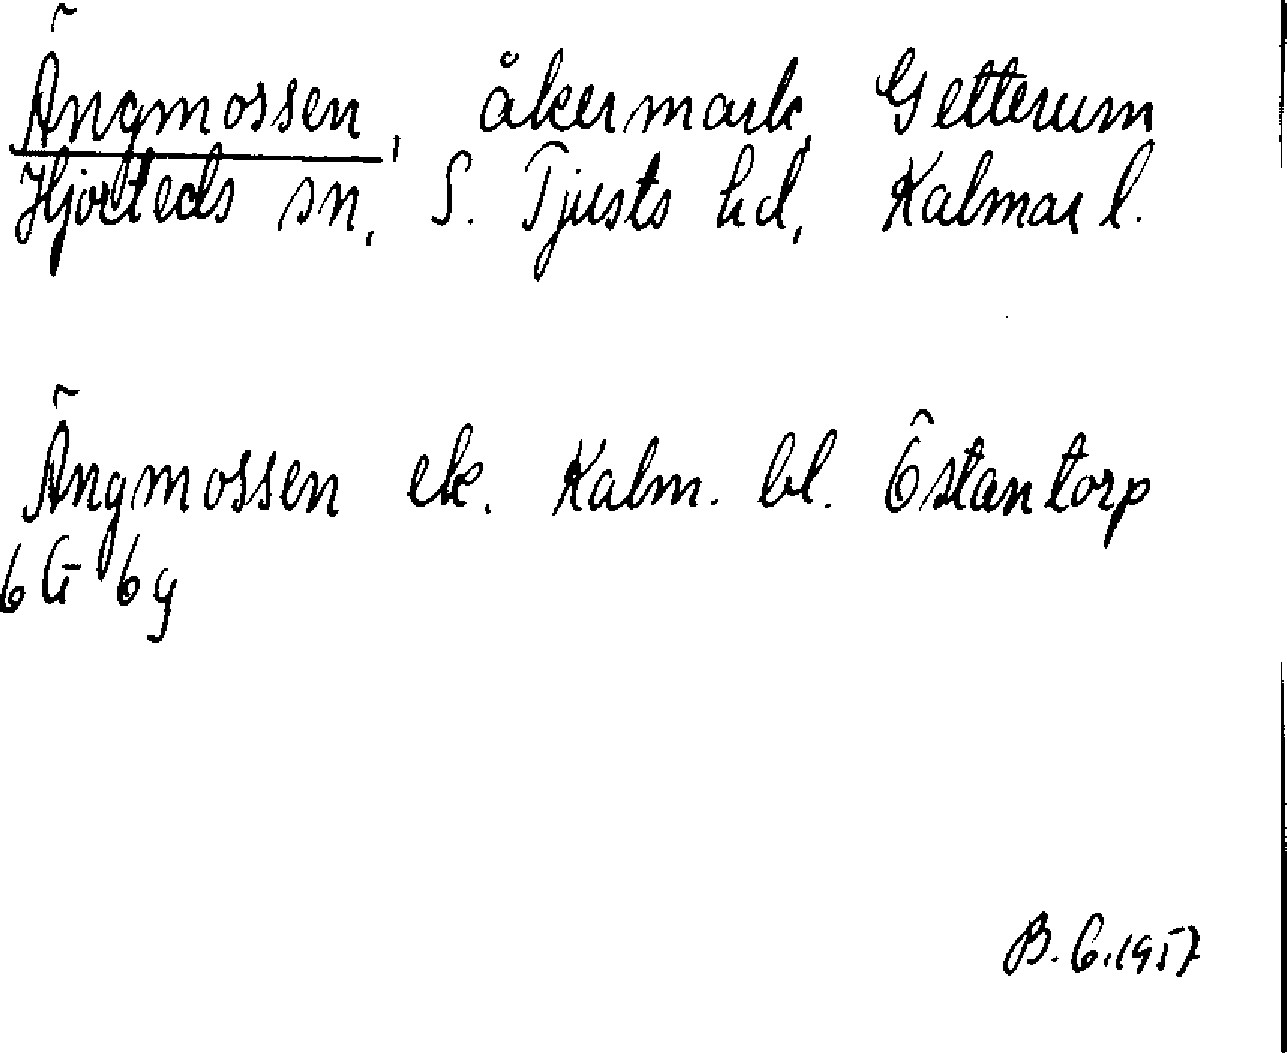 Ängmossen, åkermark, Getterum
Hjorteds sn, S. Tjusts hd, Kalmar l.
Ängmossen ek. Kalm. bl. Östantorp
6 G 6 g
B. G. 1957